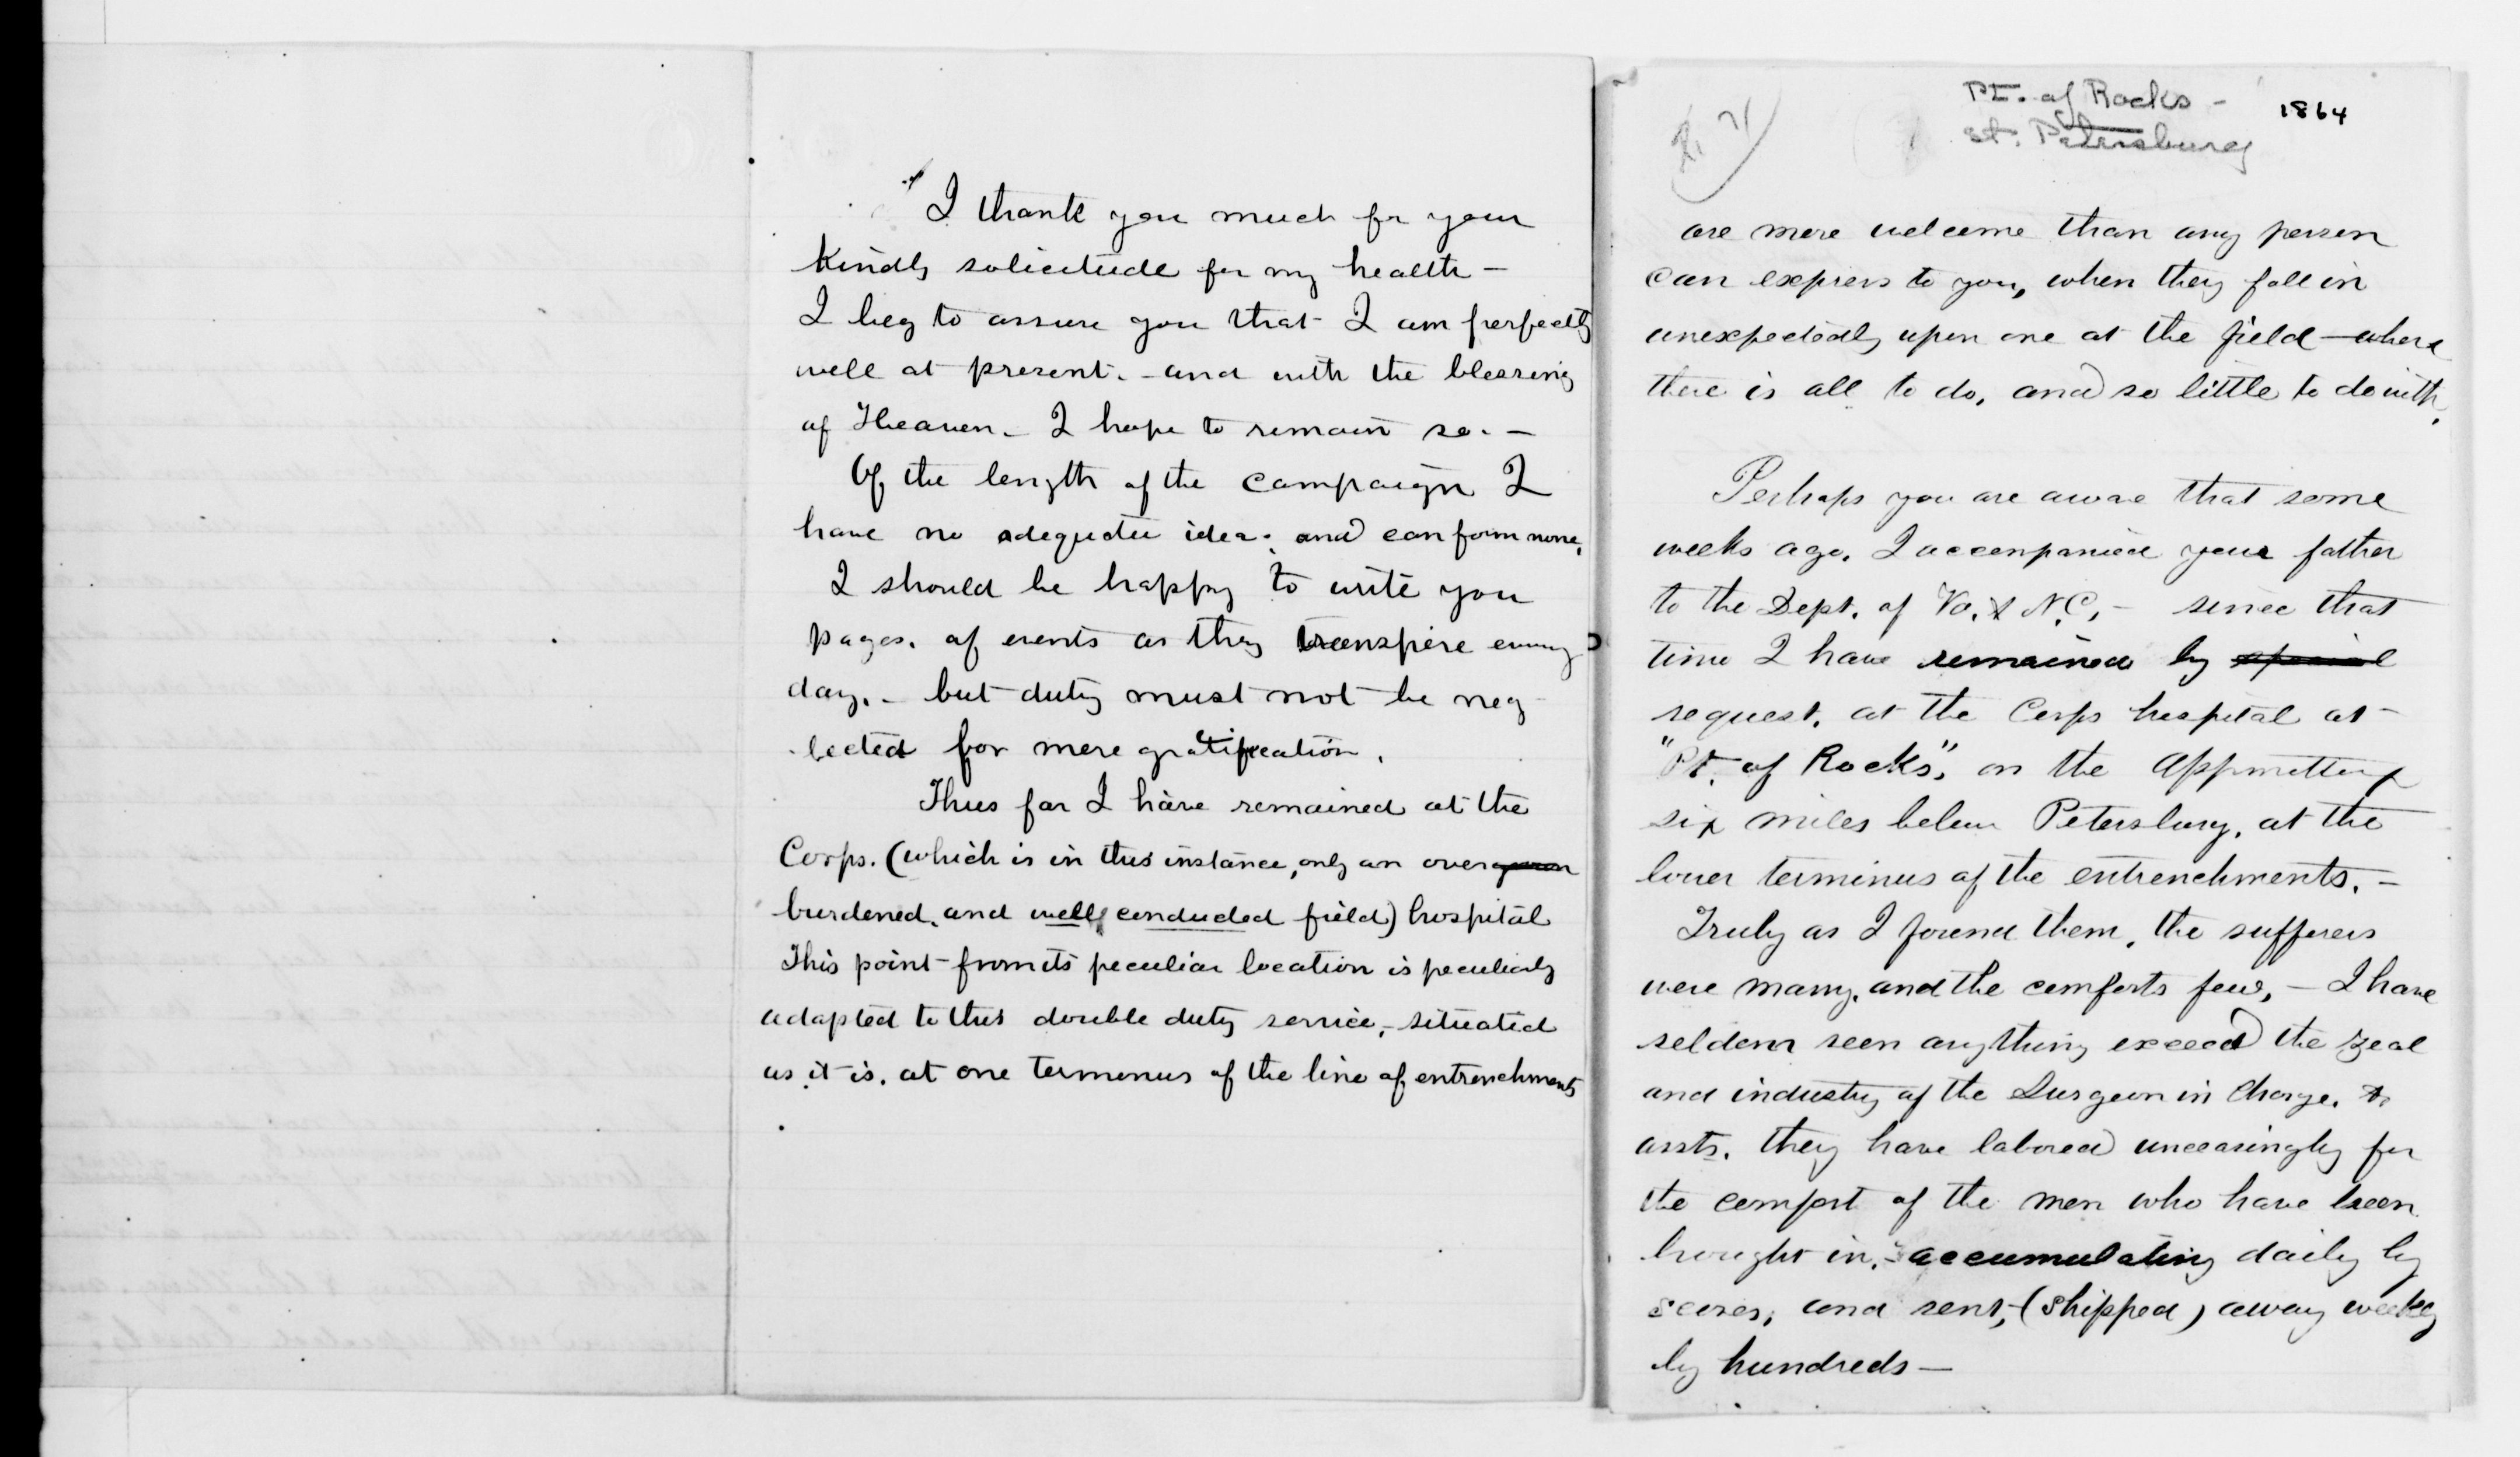 I thank you much for your
kindly solicitude for my health —
I beg to assure you that I am perfectly
well at present. - and with the blessing
of Heaven - I hope to remain so. —
Of the length of the campaign I
have no adequate idea. and can form none,
I should be happy to write you
pages. of events as they transpire every
day. - but duty must not be neg
lected for mere gratification.
Thus far I have remained at the
Corps. (which is in this instance, only an over
burdened, and well conducted field) hospital
This point from its peculiar location is peculiarly
adapted to this double duty service, - situated
as it is. at one terminus of the line of entrenchments
Pt. of Rocks - 1864
st. Petersburg
are more welcome than any person
can express to you, when they fall in
unexpectedly upon one at the field — where
there is all to do, and so little to do with,
Perhaps you are aware that some
weeks ago, I accompanied your father
to the Dept. of Va. & N.C, - since that
time I have remained by special
request, at the Corps hospital at
"Pt. of Rocks", on the Appomattox
six miles below Petersburg, at the
lower terminus of the entrenchments. -
Truly as I found them, the sufferers
were many, and the comforts few, - I have
seldom seen anything exceed the zeal
and industry of the Surgeon in Charge. &
assts. they have labored unceasingly for
the comfort of the men who have been
brought in, - accumulating daily by
scores, and sent, (shipped) away weekly
by hundreds —